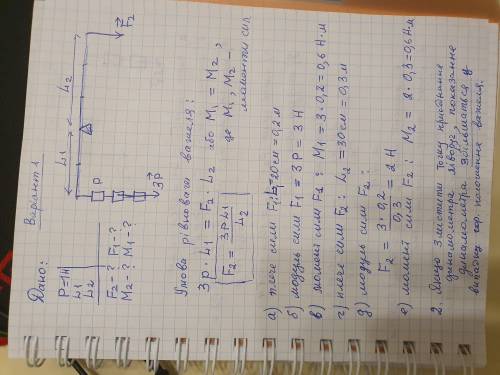 Варіант 1
Дано:
P=1Н
L1
L2
F2-? F1-?
M2-? M1-?
L1
L2
F2
P
3P
Умова рівноваги важеля:
3P·L1 = F2·L2 або M1 = M2,
де M1, M2 -
моменти сил
F2 = 3P·L1 / L2
а) плече сили F1: L1=20см = 0,2м
б) модуль сили F1 = 3P = 3Н
в) момент сили F1: M1 = 3·0,2=0,6 Н·м
г) плече сили F2: L2 = 30см = 0,3м
д) модуль сили F2:
F2 = 3·0,2 / 0,3 = 2Н
е) момент сили F2: M2 = 2·0,3=0,6Н·м
2. Якщо змістити точку кріплення
динамометра ліворуч, показання
динамометра збільшаться у
випадку гор. положення важеля.